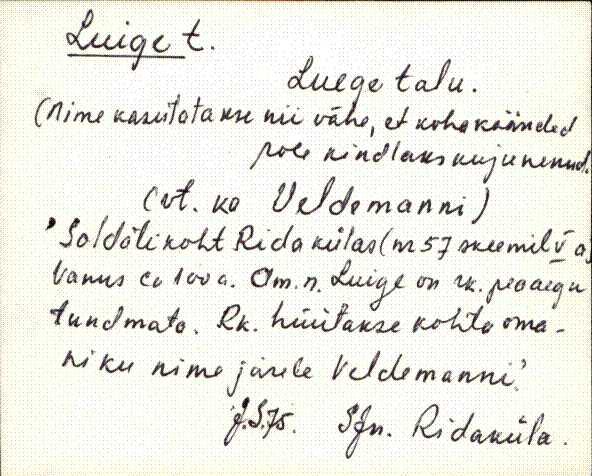 Luige t.
Luege talu.
(Nime kasutatakse nii vähe, et kohakäänded
pole kindlaks kujunenud.
(vt. ka Veldemanni)
'Soldatikoht Ridakülas (nr 57 skeemil V a)
Vanus ca 100 a. Om. n. Luige on rk. peaaegu
tundmata. Rk. hüütakse kohta oma-
niku nime järele Veldemanni.'
J.S.75. Sjn. Ridaküla.